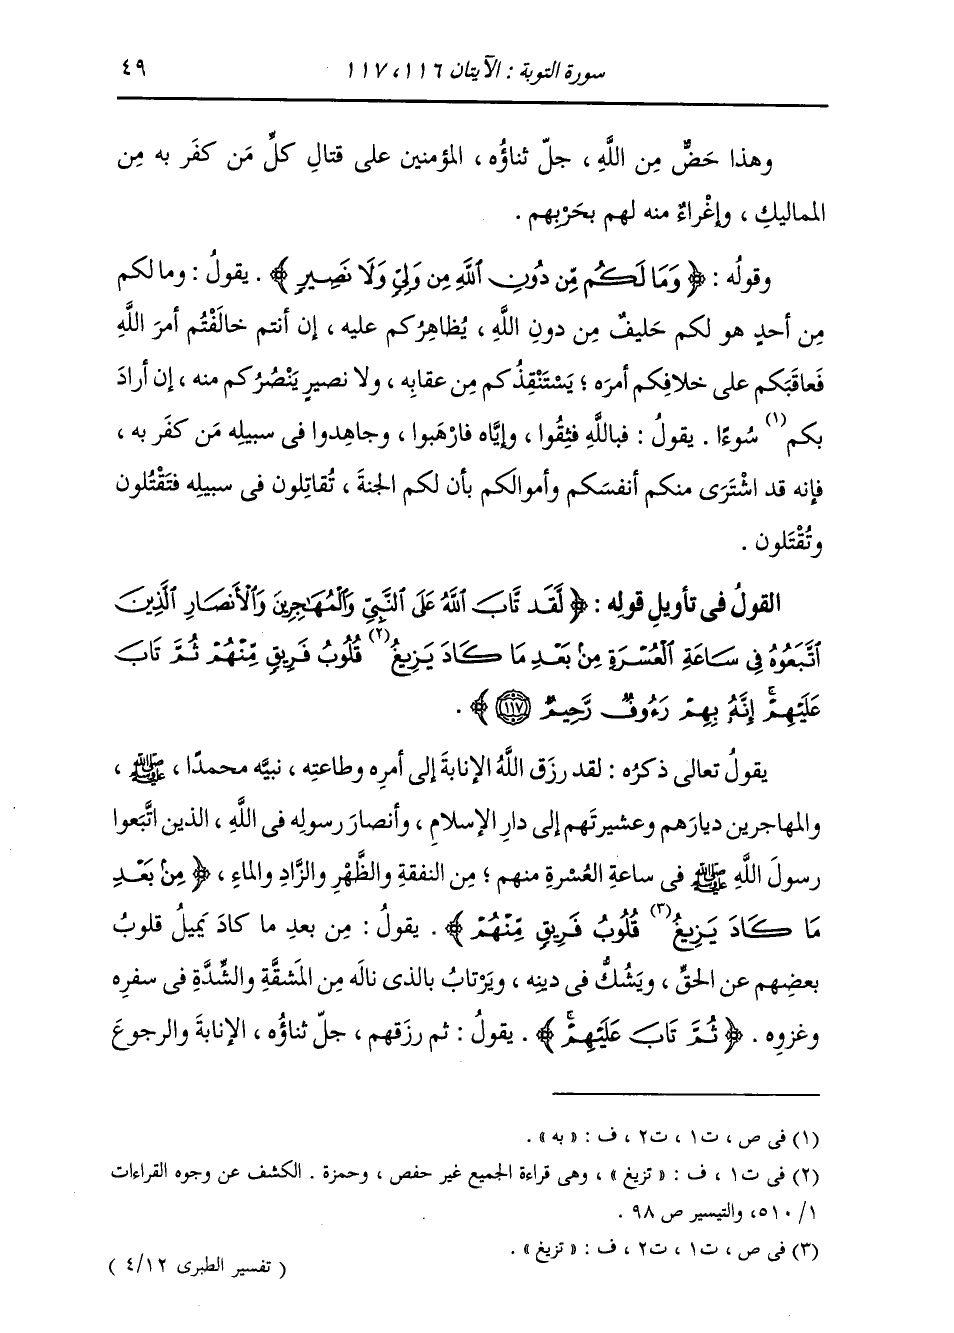 سورة التوبة : الآيتان ١١٦ ، ١١٧ ٤٩
وهذا حَضٌّ مِن اللَّهِ ، جلّ ثناؤُه ، المؤمنين على قتالِ كلِّ مَن كفَر به مِن
المماليكِ ، وإغْراءٌ منه لهم بحَرْبِهم .
وقولُه : ﴿ وَمَا لَكُم مِّن دُونِ ٱللَّهِ مِن وَلِيٍّ وَلَا نَصِيرٍ ﴾ . يقولُ : وما لكم
مِن أحدٍ هو لكم حَليفٌ مِن دونِ اللَّهِ ، يُظاهِرُكم عليه ، إن أنتم خالَفْتُم أمرَ اللَّهِ
فَعاقَبَكم على خلافِكم أمرَه ؛ يَسْتَنْقِذُكم مِن عقابِه ، ولا نصيرٍ يَنْصُرُكم منه ، إن أرادَ
بكم(١) سُوءًا . يقولُ : فباللَّهِ فثِقُوا ، وإيَّاه فارْهَبوا ، وجاهِدوا فى سبيلِه مَن كفَر به ،
فإنه قد اشْتَرَى منكم أنفسَكم وأموالَكم بأن لكم الجنةَ ، تُقاتِلون فى سبيلِه فتَقْتُلون
وتُقْتَلون .
القولُ فى تأويلِ قولِه : ﴿ لَّقَد تَّابَ ٱللَّهُ عَلَى ٱلنَّبِيِّ وَٱلْمُهَٰجِرِينَ وَٱلْأَنصَارِ ٱلَّذِينَ
ٱتَّبَعُوهُ فِي سَاعَةِ ٱلْعُسْرَةِ مِنۢ بَعْدِ مَا كَادَ يَزِيغُ(٢) قُلُوبُ فَرِيقٍ مِّنْهُمْ ثُمَّ تَابَ
عَلَيْهِمْ ۚ إِنَّهُ بِهِمْ رَءُوفٌ رَّحِيمٌ ١١٧ ﴾ .
يقولُ تعالى ذكرُه : لقد رزَق اللَّهُ الإنابةَ إلى أمرِه وطاعتِه ، نبيَّه محمدًا ، ﷺ ،
والمهاجرين ديارَهم وعشيرتَهم إلى دارِ الإسلامِ ، وأنصارَ رسولِه فى اللَّهِ ، الذين اتَّبَعوا
رسولَ اللَّهِ ﷺ فى ساعةِ العُسْرةِ منهم ؛ مِن النفقةِ والظَّهْرِ والزَّادِ والماءِ ، ﴿ مِنۢ بَعْدِ
مَا كَادَ يَزِيغُ(٣) قُلُوبُ فَرِيقٍ مِّنْهُمْ ﴾ . يقولُ : مِن بعدِ ما كادَ يَميلُ قلوبُ
بعضِهم عن الحقِّ ، ويَشُكُّ فى دينِه ، ويَرْتابُ بالذى نالَه مِن المَشقَّةِ والشِّدَّةِ فى سفرِه
وغزوِه . ﴿ ثُمَّ تَابَ عَلَيْهِمْ ۚ ﴾ . يقولُ : ثم رزَقهم ، جلّ ثناؤُه ، الإنابةَ والرجوعَ
(١) فى ص ، ت١ ، ت٢ ، ف : « به » .
(٢) فى ت١ ، ف : « تزيغ » ، وهى قراءة الجميع غير حفص ، وحمزة . الكشف عن وجوه القراءات
١/ ٥١٠، والتيسير ص ٩٨ .
(٣) فى ص ، ت١ ، ت٢ ، ف : « تزيغ » .
( تفسير الطبرى ٤/١٢ )